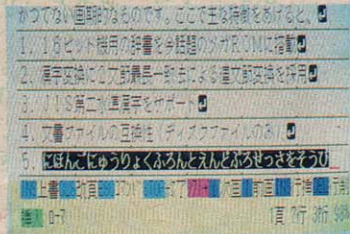 かつてない画期的なものです。ここで主な特徴をあげると、
1. 16ビット機用の辞書を今話題のメガROMに搭載
2. 漢字変換に2文節最長一致法による連文節変換を採用
3. JIS第二水準漢字をサポート
4. 文書ファイルの互換性(ディスクファイルのみ)
5. にほんごにゅうりょくふろんとえんどぷろせっさをそうび